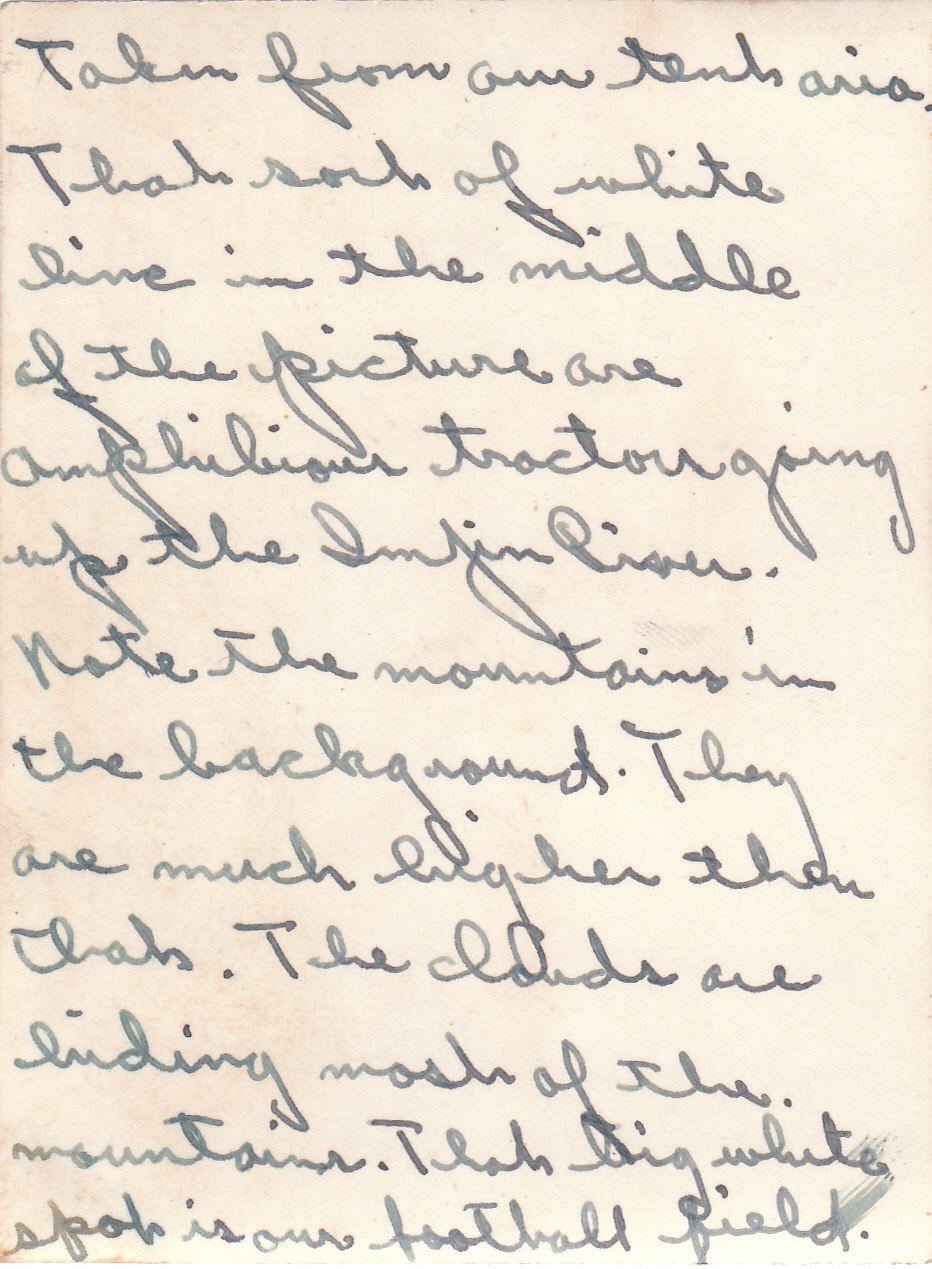 Taken from our tent area.
That sort of white
line in the middle
of the picture are
amphibious tractors going
up the Imjin River.
Note the mountains in
the background. They
are much higher then
that. The clouds are
hiding most of the.
mountains. That big white
spot is our football field.